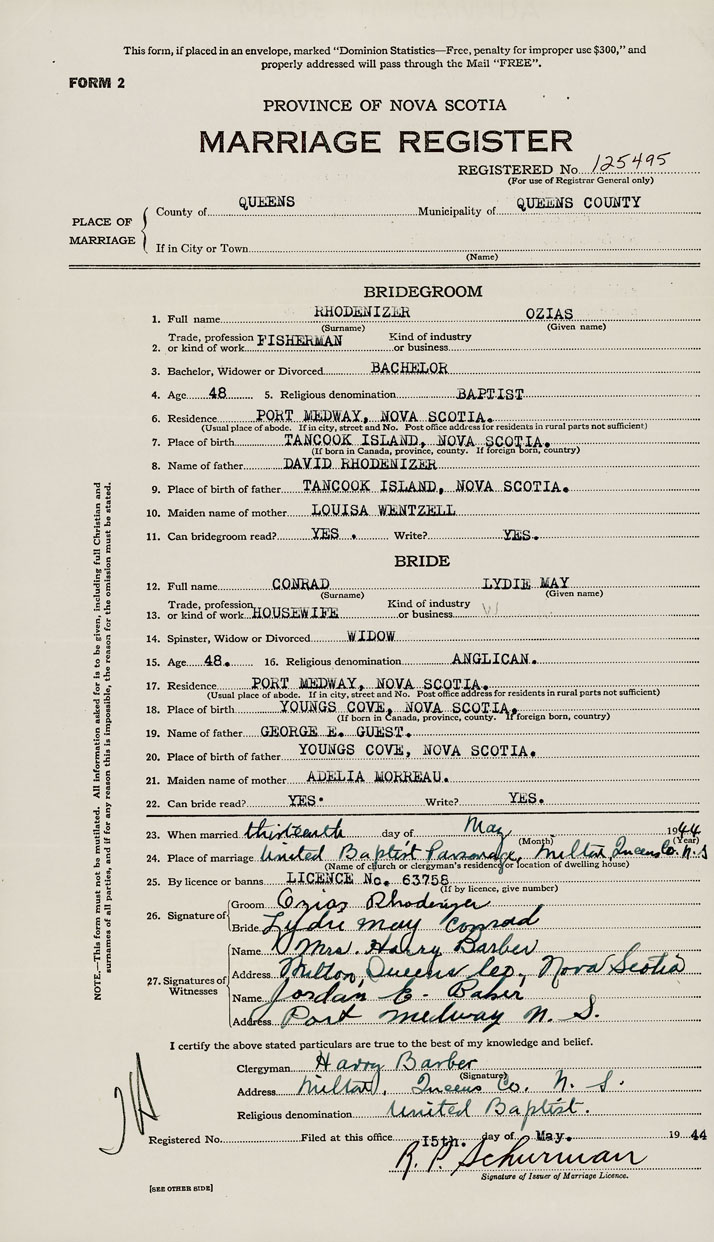 This form, if placed in an envelope, marked "Dominion Statistics—Free, penalty for improper use $300," and
properly addressed will pass through the Mail "FREE".
FORM 2
PROVINCE OF NOVA SCOTIA
MARRIAGE REGISTER
REGISTERED No. 125495
(For use of Registrar General only)
PLACE OF MARRIAGE
County of QUEENS Municipality of QUEENS COUNTY
If in City or Town
(Name)
BRIDEGROOM
1. Full name RHODENIZER OZIAS
(Surname) (Given name)
2. Trade, profession or kind of work FISHERMAN Kind of industry or business
3. Bachelor, Widower or Divorced BACHELOR
4. Age 48 5. Religious denomination BAPTIST
6. Residence PORT MEDWAY, NOVA SCOTIA.
(Usual place of abode. If in city, street and No. Post office address for residents in rural parts not sufficient)
7. Place of birth TANCOOK ISLAND, NOVA SCOTIA.
(If born in Canada, province, county. If foreign born, country)
8. Name of father DAVID RHODENIZER
9. Place of birth of father TANCOOK ISLAND, NOVA SCOTIA.
10. Maiden name of mother LOUISA WENTZELL
11. Can bridegroom read? YES . Write? YES.
BRIDE
12. Full name CONRAD LYDIE MAY
(Surname) (Given name)
13. Trade, profession or kind of work HOUSEWIFE Kind of industry or business
14. Spinster, Widow or Divorced WIDOW
15. Age 48. 16. Religious denomination ANGLICAN.
17. Residence PORT MEDWAY, NOVA SCOTIA.
(Usual place of abode. If in city, street and No. Post office address for residents in rural parts not sufficient)
18. Place of birth YOUNGS COVE, NOVA SCOTIA.
(If born in Canada, province, county. If foreign born, country)
19. Name of father GEORGE E. GUEST.
20. Place of birth of father YOUNGS COVE, NOVA SCOTIA.
21. Maiden name of mother ADELIA MORREAU.
22. Can bride read? YES. Write? YES.
23. When married thirteenth day of May 1944
(Month) (Year)
24. Place of marriage United Baptist Parsonage, Milton, Queens Co. N.S
(Name of church or clergyman's residence or location of dwelling house)
25. By licence or banns LICENCE No. 63758
(If by licence, give number)
26. Signature of
Groom Ozias Rhodenizer
Bride Lydie May Conrad
27. Signatures of Witnesses
Name Mrs. Harry Barber
Address Milton, Queens Co., Nova Scotia
Name Jordan E. Baker
Address Port Medway N. S.
I certify the above stated particulars are true to the best of my knowledge and belief.
Clergyman Harry Barber
(Signature)
Address Milton, Queens Co. N. S.
Religious denomination United Baptist.
Registered No. Filed at this office 15th. day of May. 1944
R. P. Schurman
Signature of Issuer of Marriage Licence.
[SEE OTHER SIDE]
NOTE.—This form must not be mutilated. All information asked for is to be given, including full Christian and
surnames of all parties, and if for any reason this is impossible, the reason for the omission must be stated.